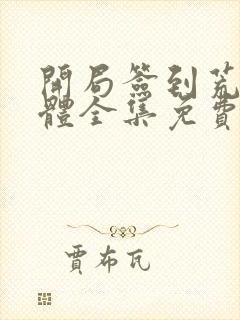 開局簽到荒
體全集免費
賈布瓦